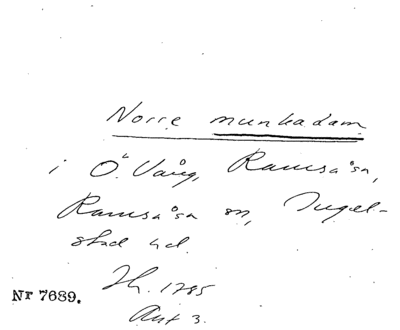 Norre munkadam
i Ö. Vång, Ramsåsa,
Ramsåsa sn, Ingel-
stad hd.
Th. 1785
Nr 7689.
Akt 3.